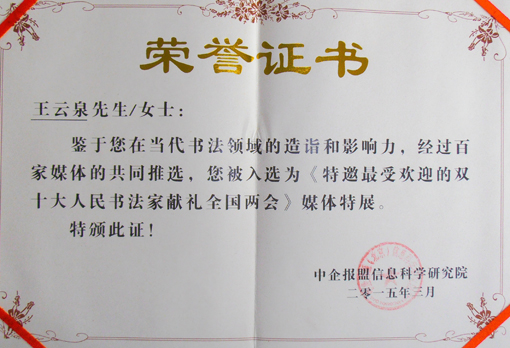 荣誉证书
王云泉先生/女士：
鉴于您在当代书法领域的造诣和影响力，经过百
家媒体的共同推选，您被入选为《特邀最受欢迎的双
十大人民书法家献礼全国两会》媒体特展。
特颁此证！
中企报盟信息科学研究院
二零一五年三月